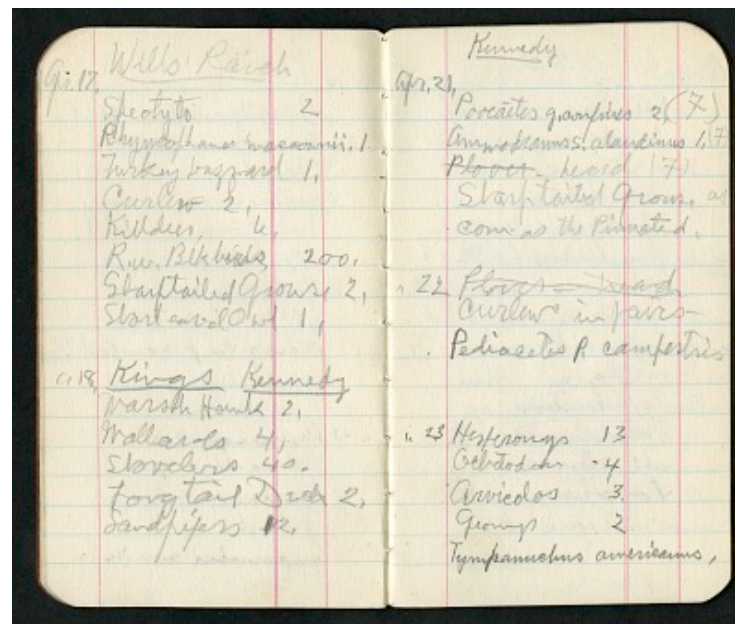 Apr. 17, Wills Ranch
Speotyto 2
Rhyncophanes maccownii. 1
Turkey buzzard 1,
Curlew 2,
Killdeer,
R.w. Blkbirds, 200.
Sharptailed Grouse 2,
Short eared Owl 1,
" 18, Kings Kennedy
Marsh Hawk 2,
Mallards 4,
Shovelers 40.
Long tail Duck 2,
Sandpipers 12,
Kennedy
Apr. 21,
Pooecetes gramineus 2, (7)
Ammodramus s. alaudinus 1, (7
Plover - heard (7)
Sharptailed Grouse, as
com. as the Pinnated.
" 22 Plover - heard
Curlews in pairs -
Pediacetes p. campestris
" 23 Hesperomys 13
Geomys 2
Arvicolas 3
Tympanuchus americanus,